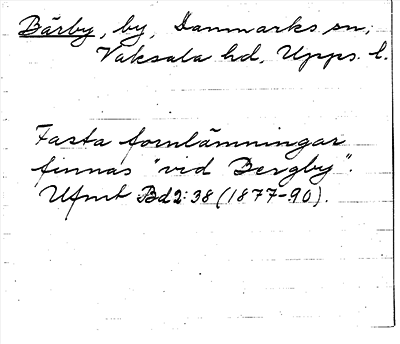 Bärby, by, Danmarks sn,
Vaksala hd, Upps. l.
Fasta fornlämningar
finnas "vid Bergby".
Ufmt Bd 2:38 (1877-90).